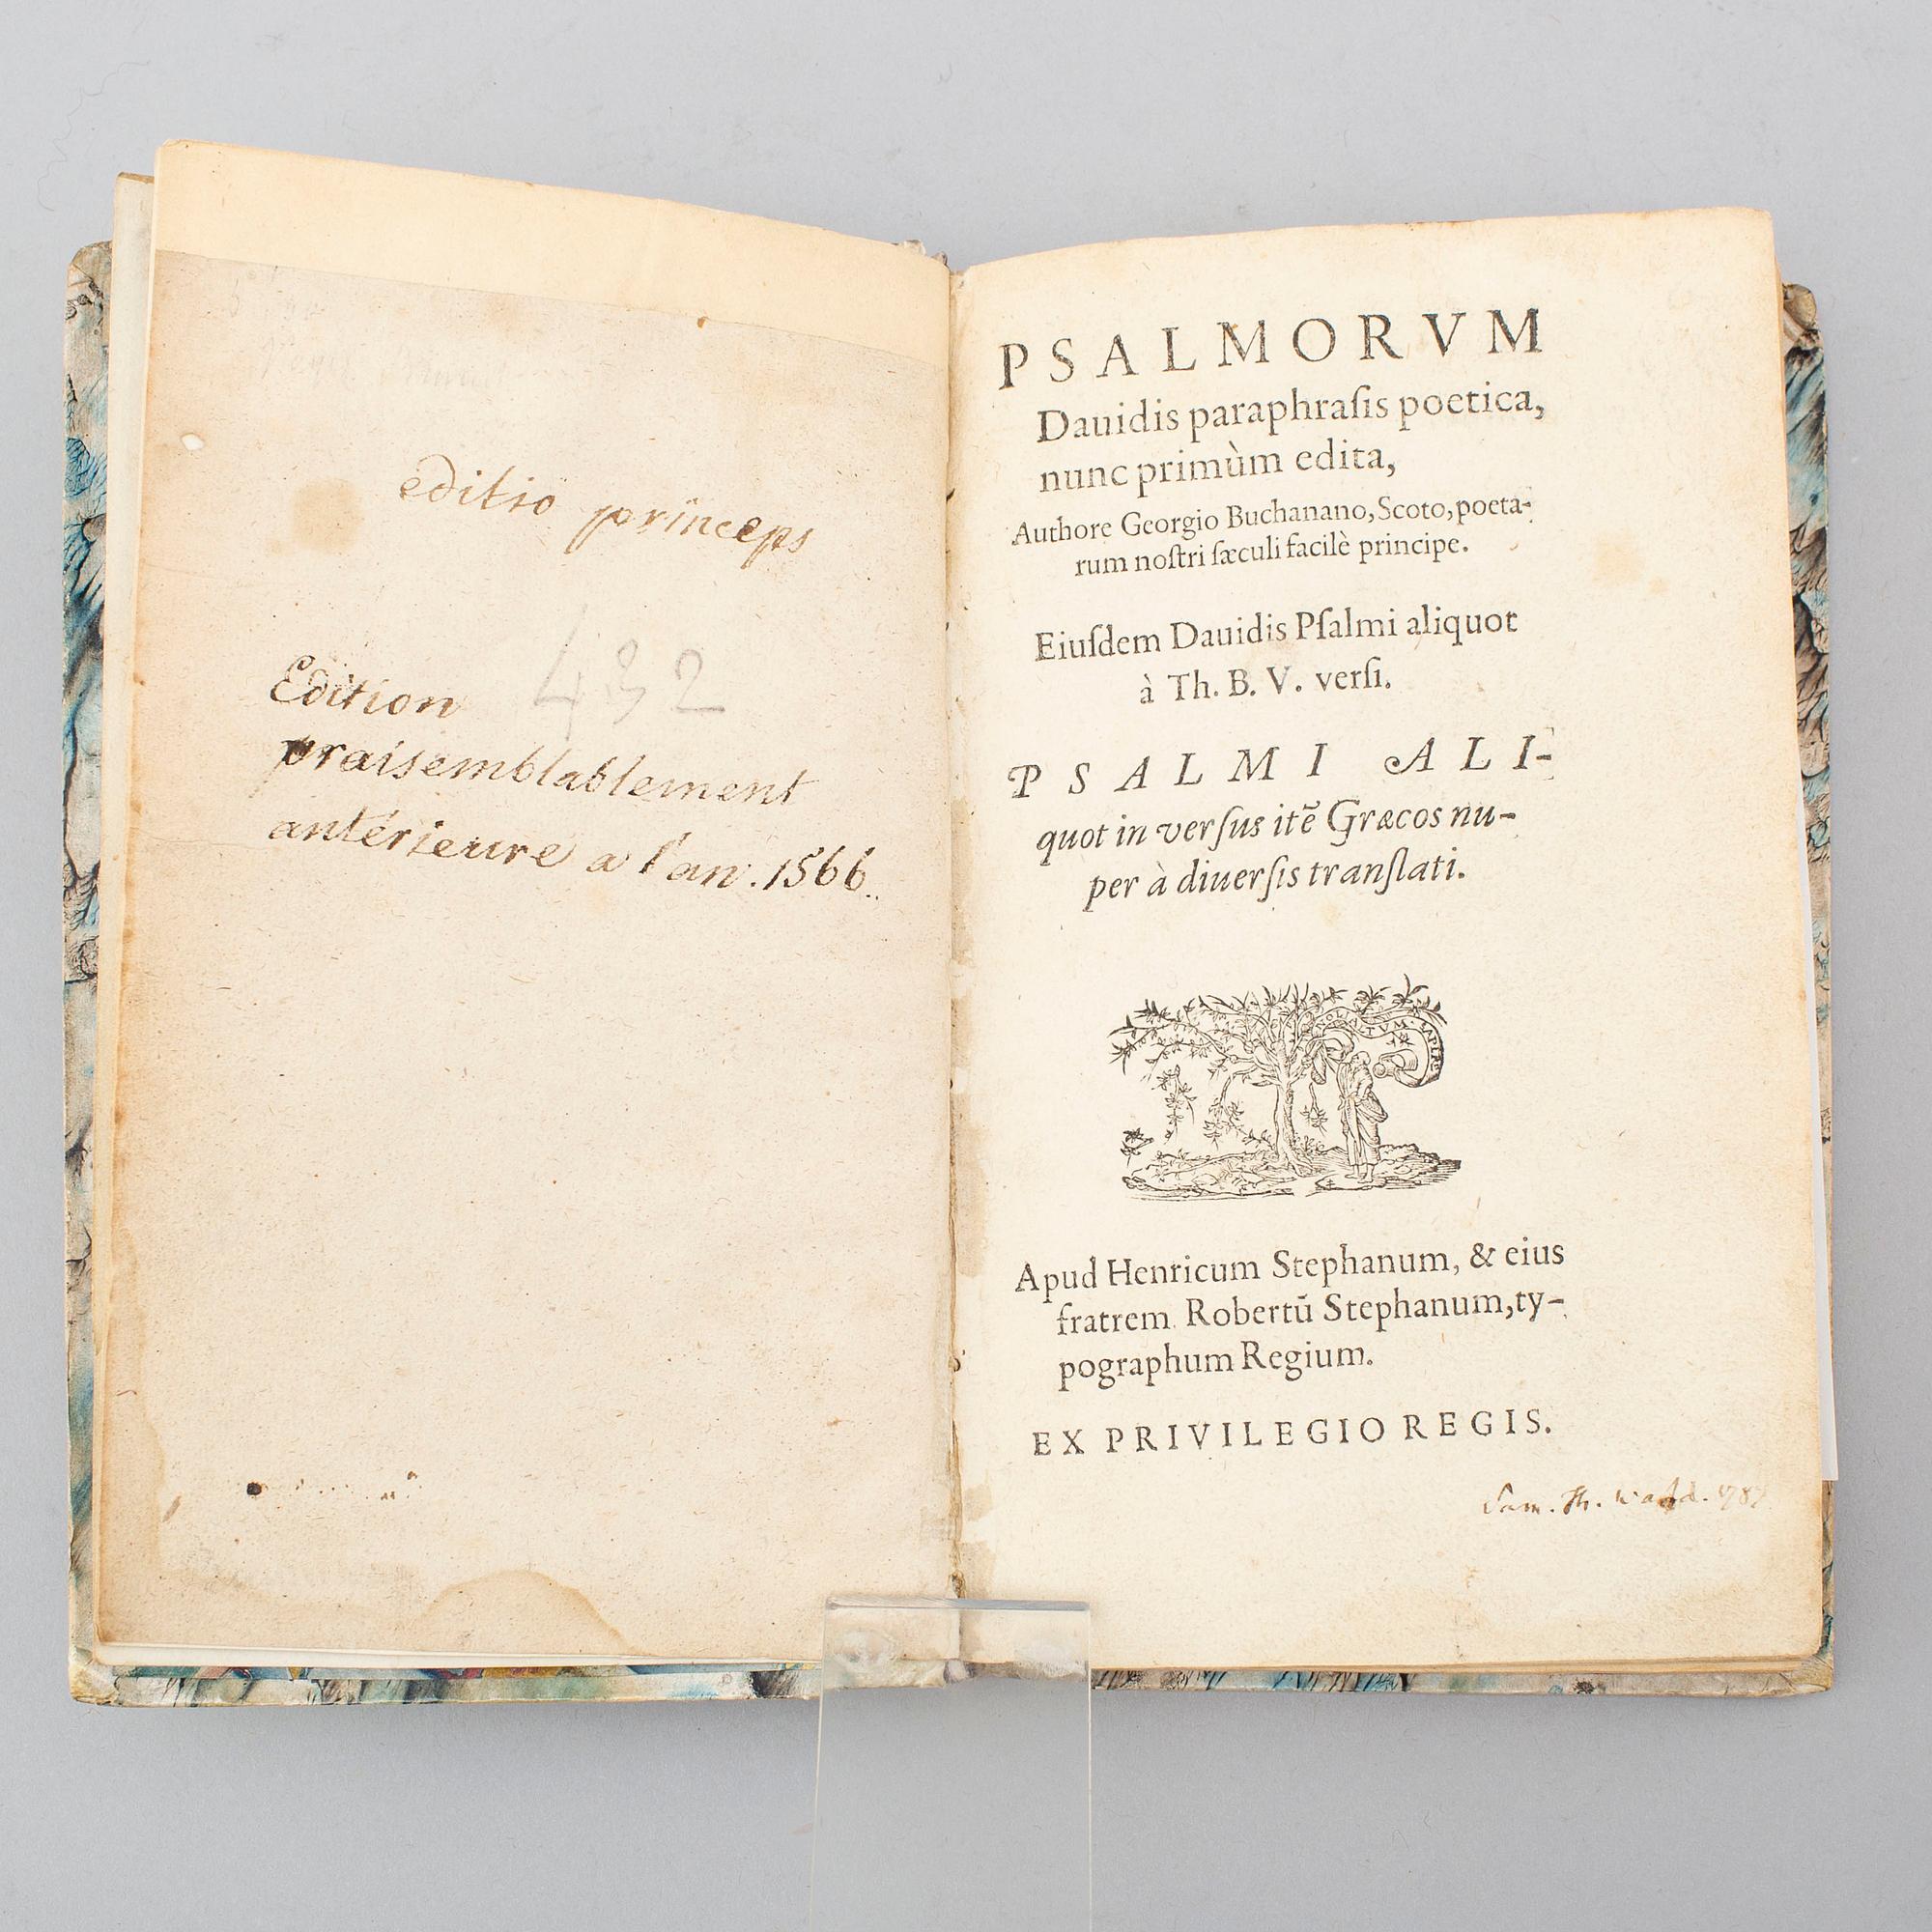 editio princeps
432
Edition
vraisemblablement
antérieure a l'an. 1566.
PSALMORVM
Dauidis paraphraſis poetica,
nunc primùm edita,
Authore Georgio Buchanano, Scoto, poeta-
rum noſtri ſæculi facilè principe.
Eiuſdem Dauidis Pſalmi aliquot
à Th. B. V. verſi.
PSALMI ALI-
quot in verſus itẽ Græcos nu-
per à diuerſis tranſlati.
NOLI ALTVM SAPERE
Apud Henricum Stephanum, & eius
fratrem Robertũ Stephanum, ty-
pographum Regium.
EX PRIVILEGIO REGIS.
Sam. Th.